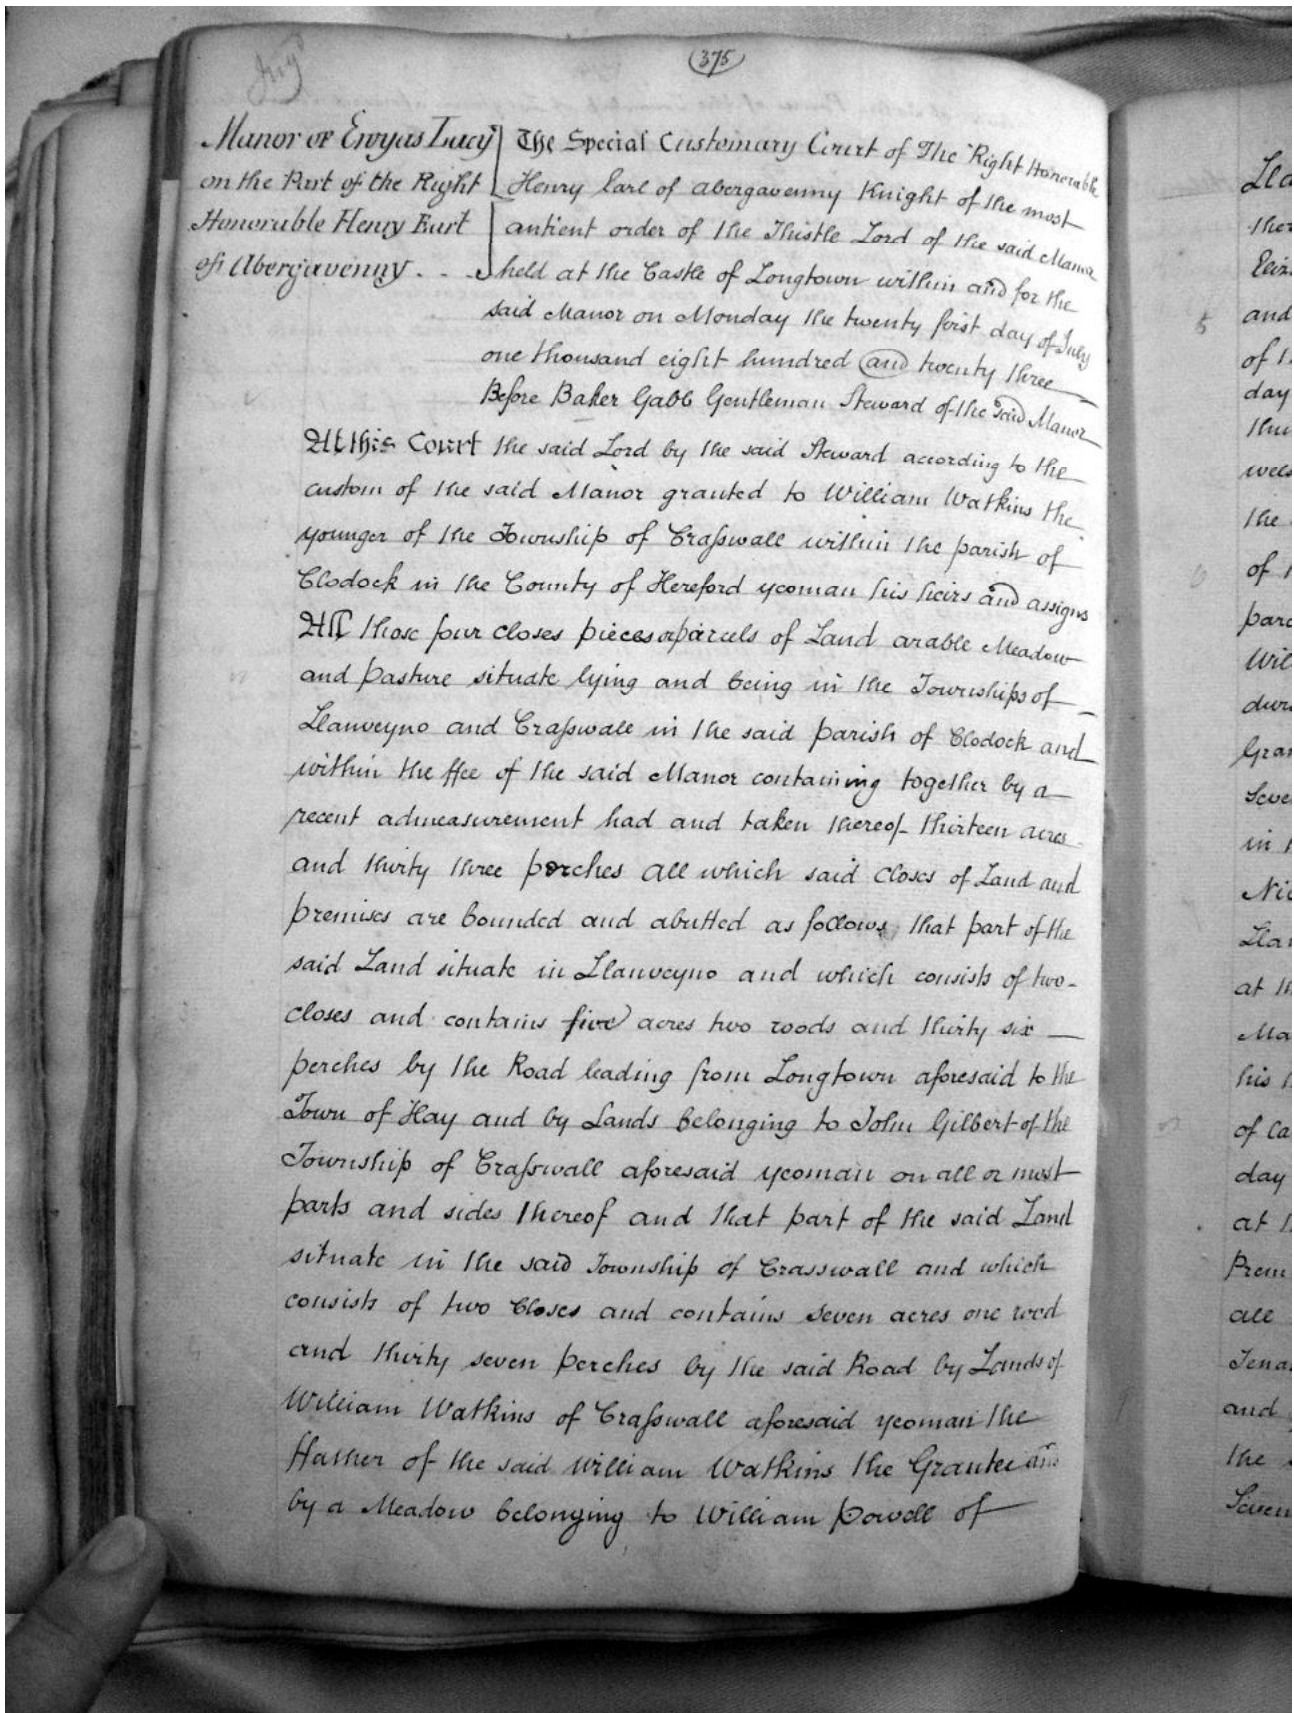 375
Manor of Ewyas Lacy
on the Part of the Right
Honorable Henry Earl
of Abergavenny - - -
The Special Customary Court of The Right Honorable
Henry Earl of Abergavenny Knight of the most
antient order of the Thistle Lord of the said Manor
held at the Castle of Longtown within and for the
said Manor on Monday the twenty first day of July
one thousand eight hundred and twenty three
Before Baker Gabb Gentleman Steward of the said Manor
At this Court the said Lord by the said Steward according to the
custom of the said Manor granted to William Watkins the
younger of the Township of Crasswall within the parish of
Clodock in the County of Hereford yeoman his heirs and assigns
All those four closes pieces or parcels of Land arable Meadow
and pasture situate lying and being in the Townships of
Llanveyno and Crasswall in the said parish of Clodock and
within the ffee of the said Manor containing together by a
recent admeasurement had and taken thereof thirteen acres
and thirty three perches all which said closes of Land and
premises are bounded and abutted as follows, that part of the
said Land situate in Llanveyno and which consists of two
closes and contains five acres two roods and thirty six
perches by the Road leading from Longtown aforesaid to the
Town of Hay and by Lands belonging to John Gilbert of the
Township of Crasswall aforesaid yeoman on all or most
parts and sides thereof and that part of the said Land
situate in the said Township of Crasswall and which
consists of two Closes and contains seven acres one rood
and thirty seven perches by the said Road by Lands of
William Watkins of Crasswall aforesaid yeoman the
ffather of the said William Watkins the Grantee and
by a Meadow belonging to William Powell of
Lla
ther
Eliz
and
of
day
thu
the
of
parc
Wil
dur
Gran
Seve
in
Nic
Llan
at th
Ma
his
of Ca
day
at
Prem
all
Tena
and
the
Seven